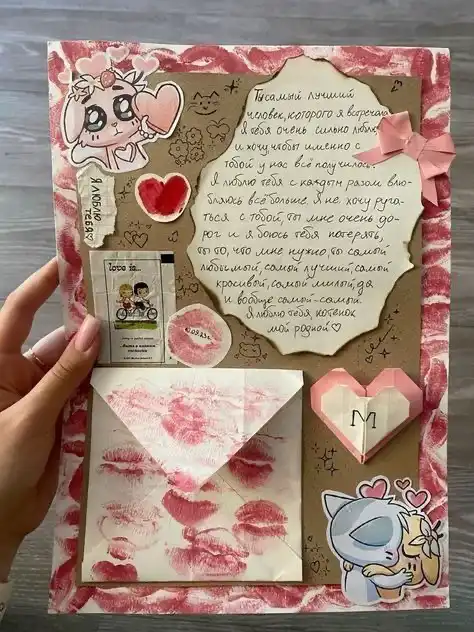 Ты самый лучший
человек, которого я встречала
Я тебя очень сильно люблю
и хочу чтобы именно с
тобой у нас всё получилось.
Я люблю тебя с каждым разом влю-
бляюсь всё больше. Я не хочу руга-
ться с тобой, ты мне очень до-
рог и я боюсь тебя потерять,
ты то, что мне нужно, ты самый
любимый, самый лучший, самый
красивый, самый милый, да
и вообще самый-самый.
Я люблю тебя, котенок
мой родной♡
Я ЛЮБЛЮ
ТЕБЯ♡
love is...
M